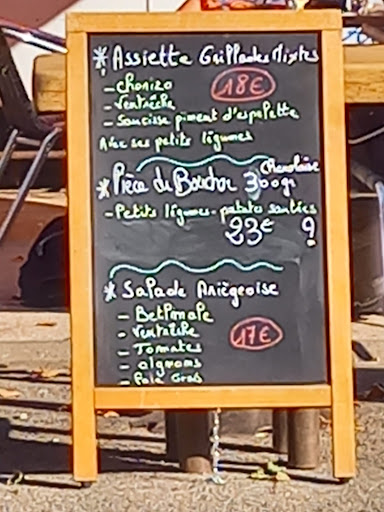 * Assiette Grillades Mixtes
- Chorizo
18€
- Ventrêche
- Saucisse piment d'espelette
Avec ses petits légumes
* Pièce du Boucher 300gr Charolaise
- Petits légumes - patates sautées
23€
* Salade Ariègeoise
- Betmale
- Ventrêche
17€
- Tomates
- oignons
- Foie Gras